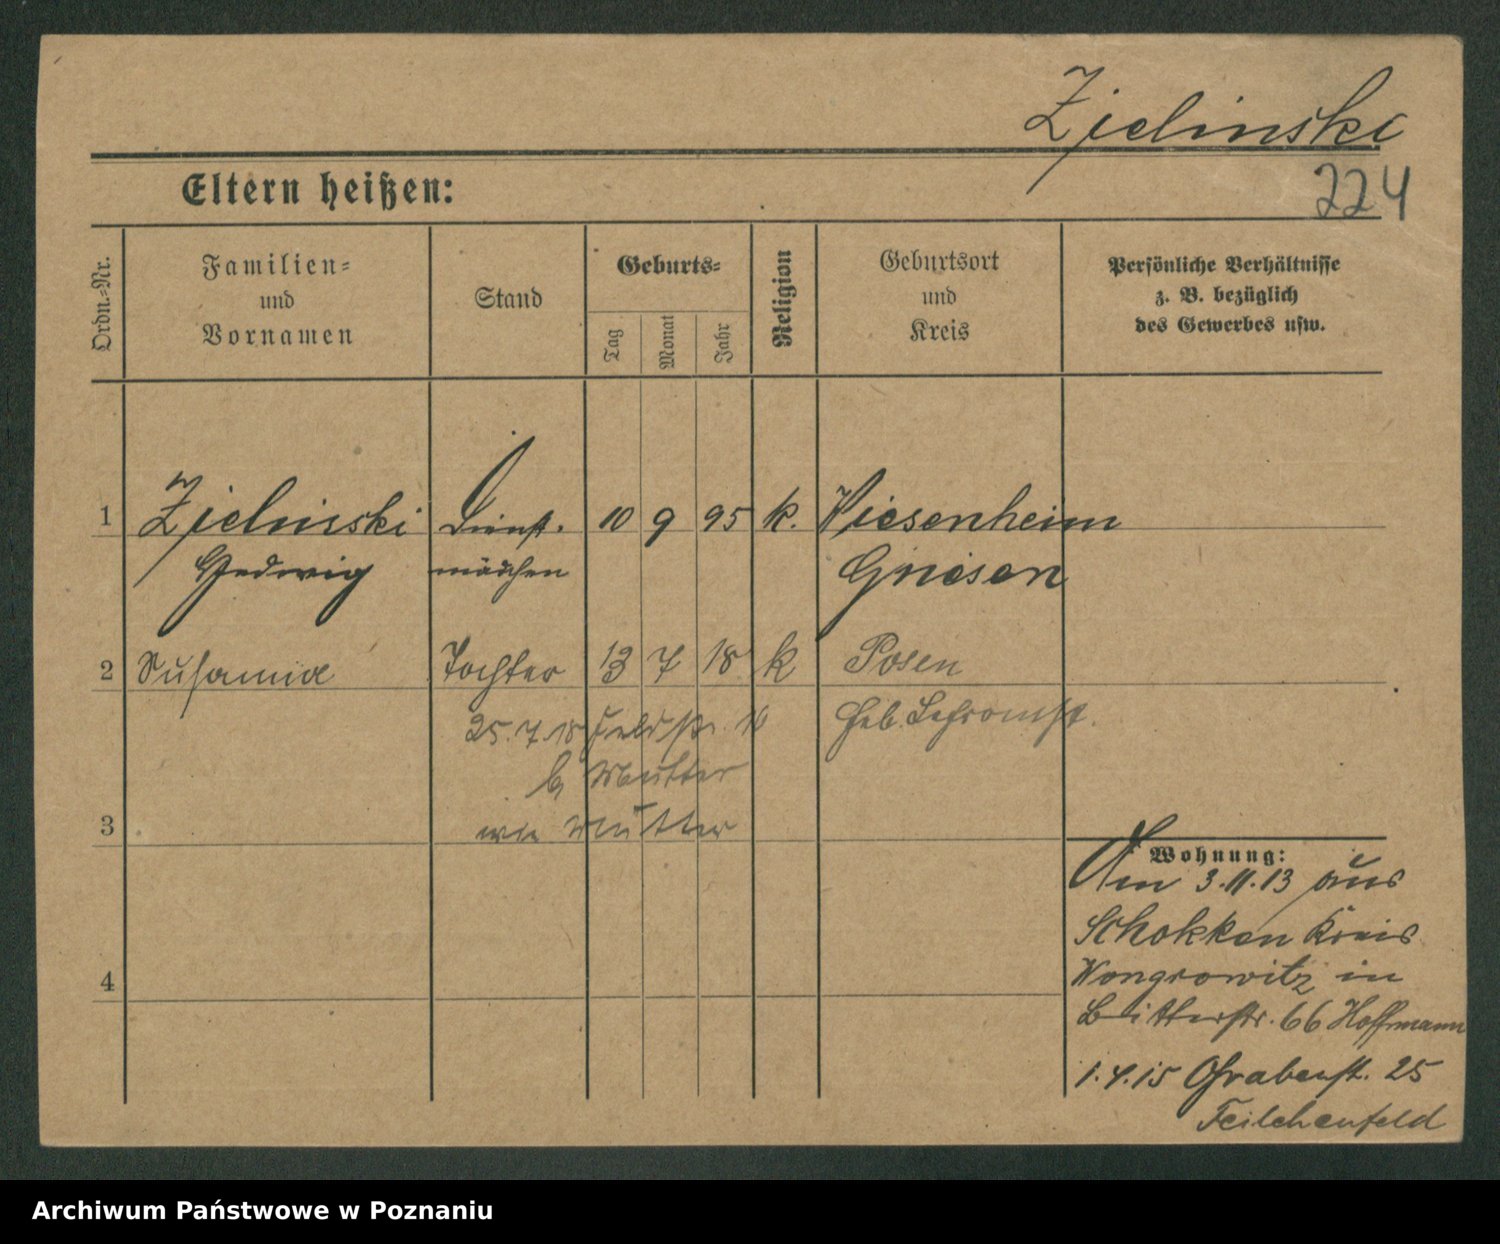 Zielinski
224
Eltern heißen:
Ordn.-Nr.
Familien-
und
Vornamen
Stand
Geburts-
Tag
Monat
Jahr
Religion
Geburtsort
und
Kreis
Persönliche Verhältnisse
z. B. bezüglich
des Gewerbes usw.
1 Zielinski Dienst- 10 9 95 k. Wiesenheim
Hedwig mädchen Gnesen
2 Tochter 13 7 18 k Posen
25.7.18 Feldstr. Heb.
b Mutter
3 wie Mutter
Wohnung:
Am 3.11.13 aus
Schokken Kreis
4 Wongrowitz in
66 Hoffmann
1.4.15 Grabenst. 25
Feilchenfeld
Archiwum Państwowe w Poznaniu